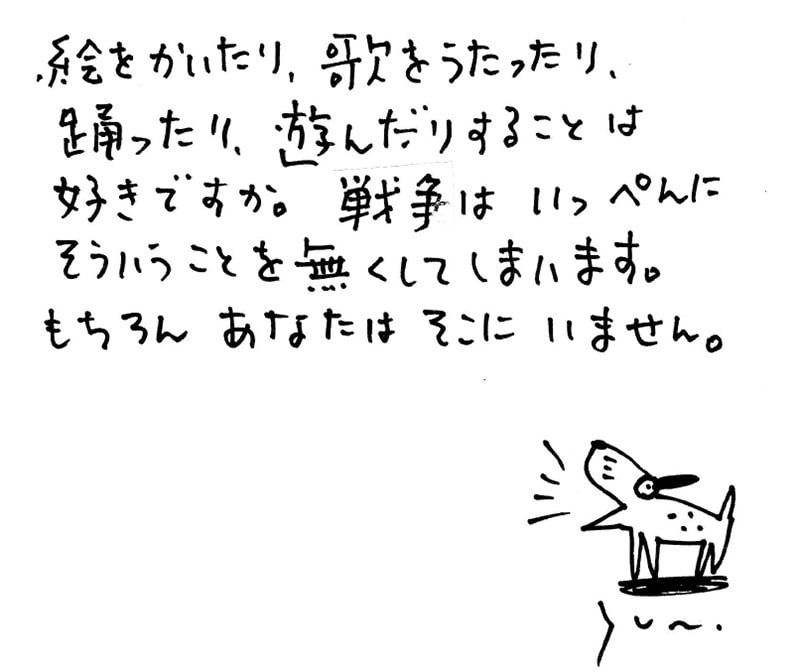 絵をかいたり、歌をうたったり、
踊ったり、遊んだりすることは
好きですか。戦争は いっぺんに
そういうことを無くしてしまいます。
もちろん あなたは そこに いません。